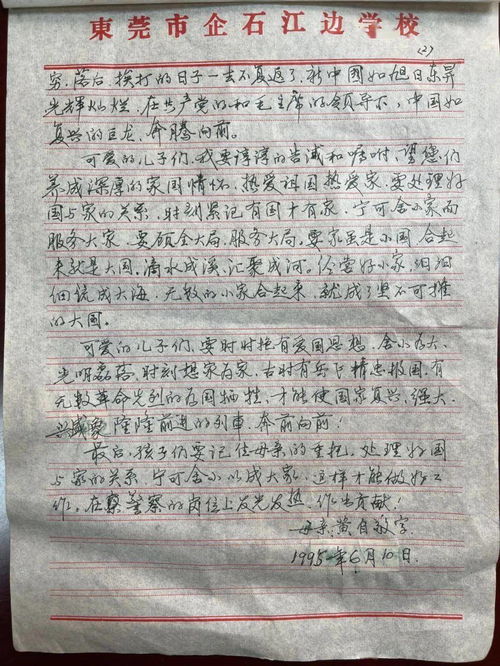 東莞市企石江边学校
(2)
穷,落后,挨打的日子一去不复返了,新中国如旭日东昇
光辉灿烂,在共产党的和毛主席的领导下,中国如
复兴的巨龙,奔腾向前。
可爱的儿子们,我要谆谆的告诫和嘱咐,望您们
养成深厚的家国情怀,热爱祖国热爱家,要处理好
国与家的关系,时刻紧记有国才有家,宁可舍小家而
服务大家,要顾全大局,服务大局。要家虽是小国,合起
来就是大国。滴水成溪,汇聚成河。经营好小家,汩汩
细流成大海,无数的小家合起来,就成了坚不可摧
的大国。
可爱的儿子们,要时时抱有爱国思想,舍小存大,
光明磊落,时刻想家存家,古时有岳飞精忠报国,有
无数革命先烈的为国牺牲,才能使国家复兴,强大,
兴盛象隆隆前进的列車,奔前向前!
最后,孩子们要记住母亲的重托,处理好国
与家的关系,宁可舍小以成大家,这样才能做好工
作,在警察的岗位上发光发热,作出贡献!
母亲:黄自敏字
1995年6月10日.